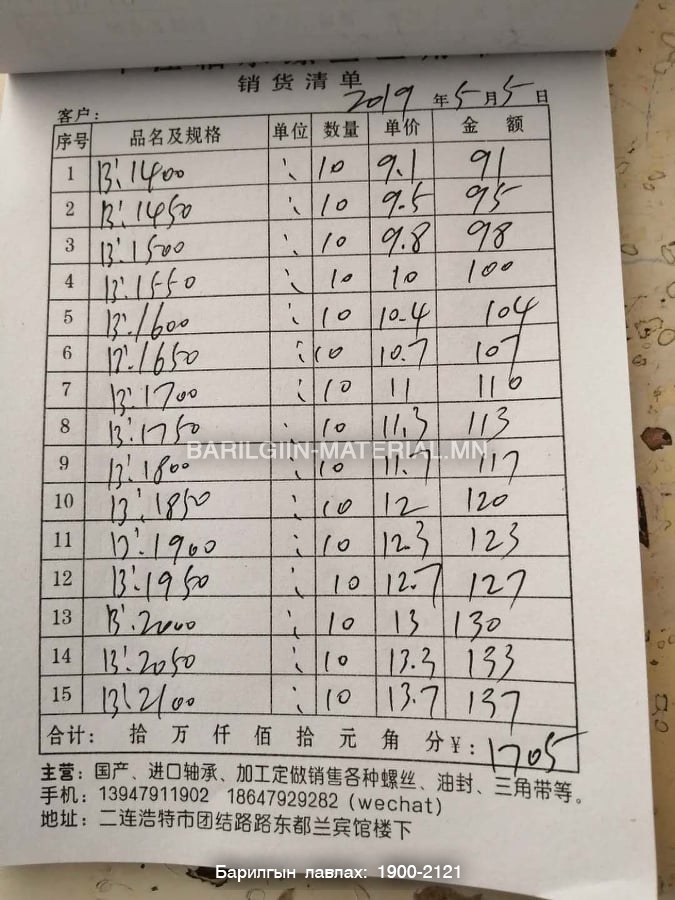 销货清单
客户： 2019 年 5 月 5 日
序号 品名及规格 单位 数量 单价 金额
1 B: 1400 10 9.1 91
2 B: 1450 10 9.5 95
3 B: 1500 10 9.8 98
4 B: 1550 10 10 100
5 B: 1600 10 10.4 104
6 B: 1650 10 10.7 107
7 B: 1700 10 11 110
8 B: 1750 10 11.3 113
9 B: 1800 10 11.7 117
10 B: 1850 10 12 120
11 B: 1900 10 12.3 123
12 B: 1950 10 12.7 127
13 B: 2000 10 13 130
14 B: 2050 10 13.3 133
15 B: 2100 10 13.7 137
合计： 拾 万 仟 佰 拾 元 角 分 ¥： 1705
主营：国产、进口轴承、加工定做销售各种螺丝、油封、三角带等。
手机：13947911902 18647929282 (wechat)
地址：二连浩特市团结路路东都兰宾馆楼下
BARILGIIN-MATERIAL.MN
Барилгын лавлах: 1900-2121